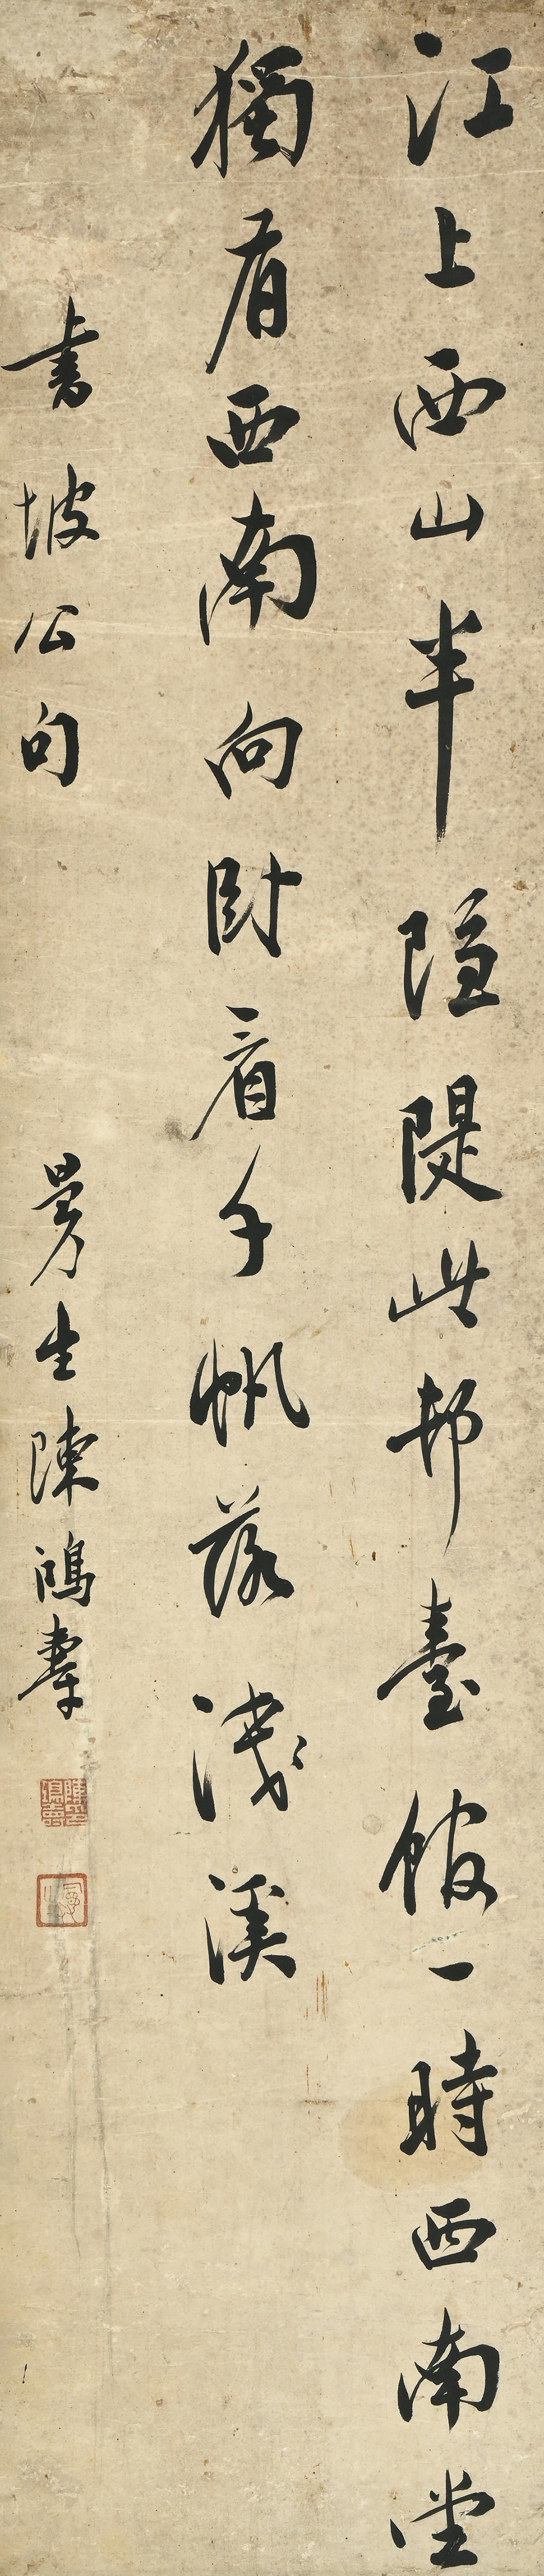 江上西山半隱隄此邦臺館一時西南堂
獨有西南向卧看千帆落淺溪
書坡公句
曼生陳鴻壽